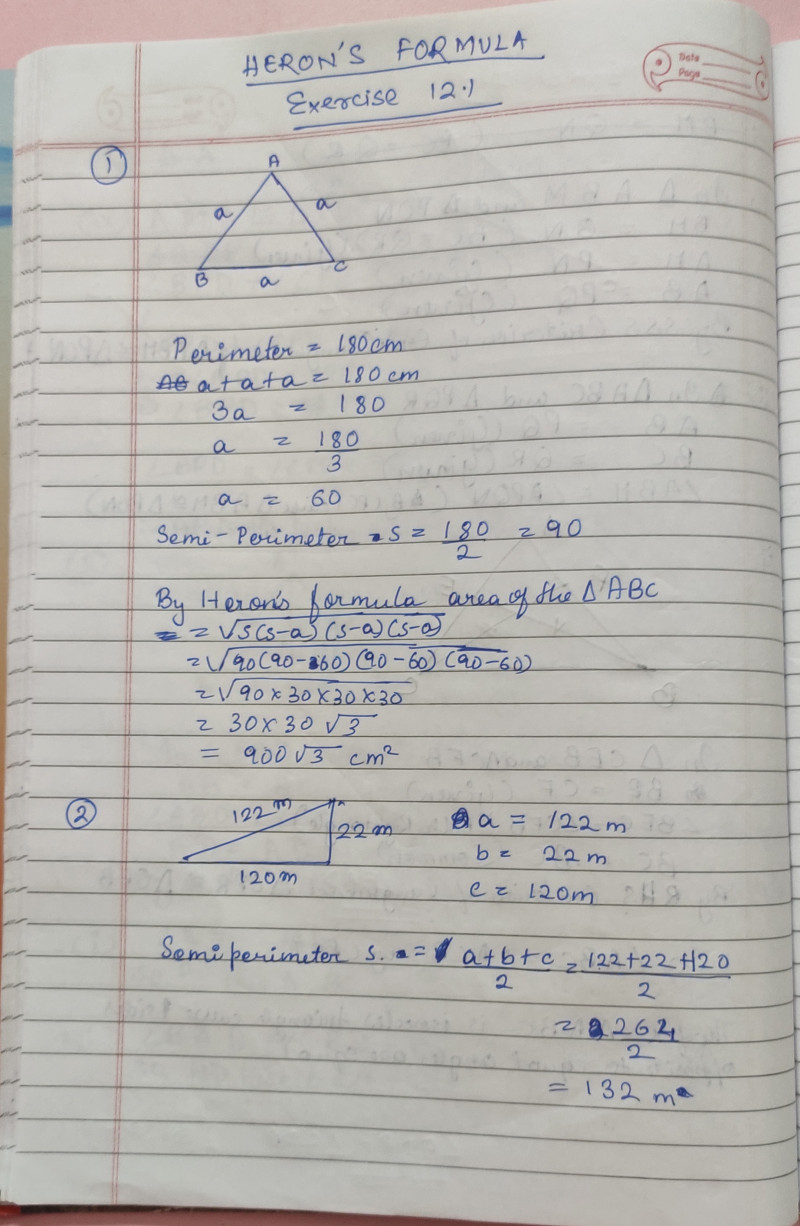 HERON'S FORMULA
Exercise 12.1
Date
Page
1
A
a
a
B
a
C
Perimeter = 180cm
a+a+a = 180 cm
3a = 180
a = 180/3
a = 60
Semi-Perimeter s = 180/2 = 90
By Heron's formula area of the ΔABC
= √s(s-a)(s-a)(s-a)
= √90(90-60)(90-60)(90-60)
= √90×30×30×30
= 30×30√3
= 900√3 cm²
2
122m
22m
120m
a = 122 m
b = 22 m
c = 120m
Semiperimeter s. = a+b+c/2 = 122+22+120/2
= 264/2
= 132 m